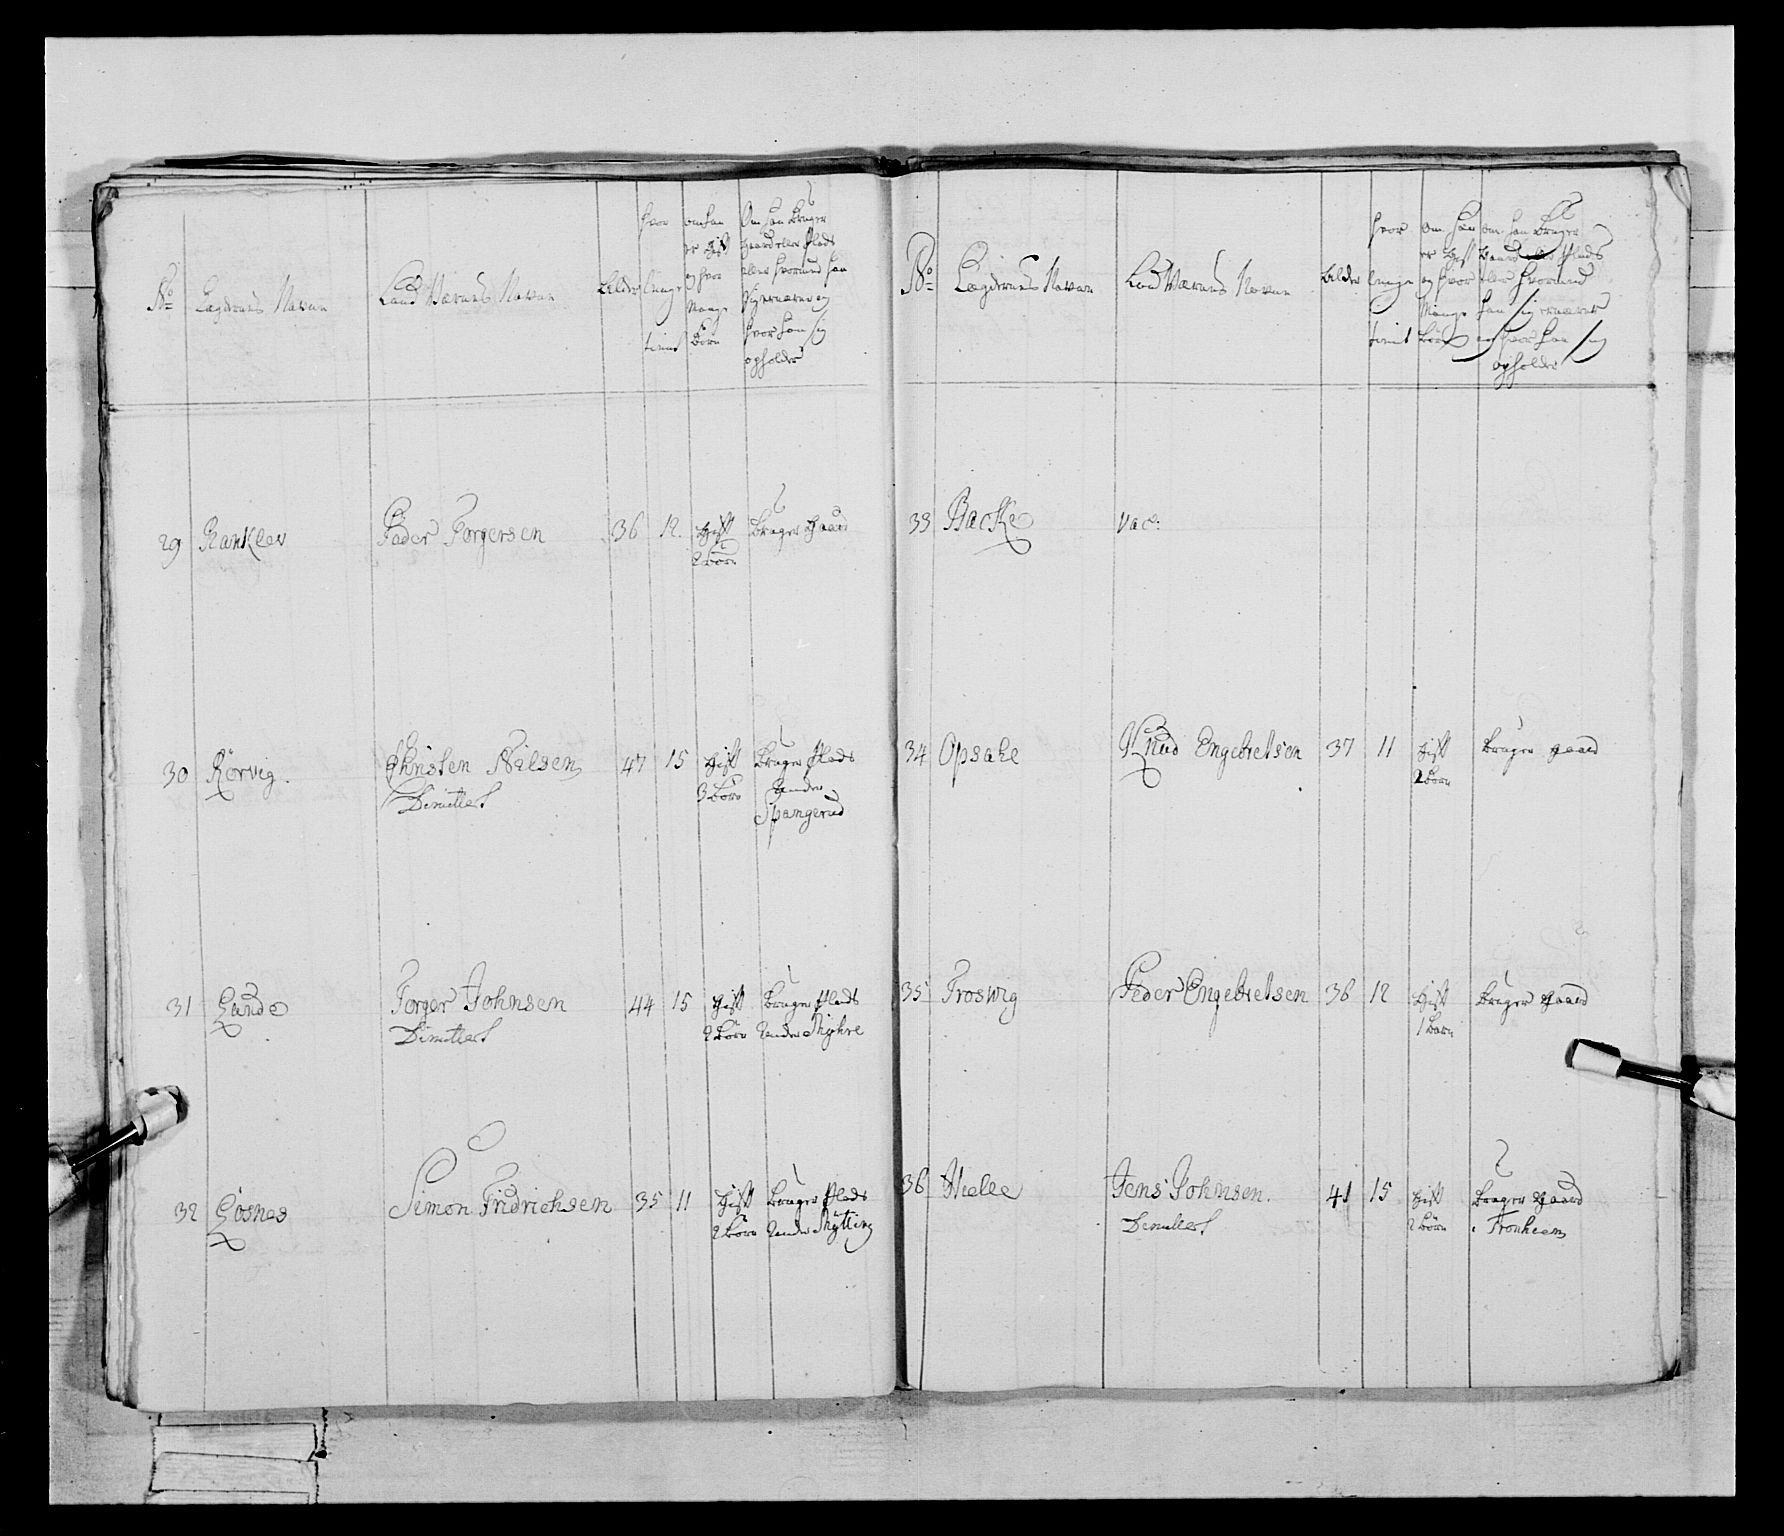 No
Lægdernes Navne
Land Værnets Navne
Alder
hvor
længe
tient
om han
er Gift
og hvor
Mange
Børn
Om han Bruger
Gaard eller Plads
eller hvormed han
sig ernærer og
hvor han sig
opholder
29 Ranklev Peder Torgersen 36 12. Gift Bruger Gaard
2 Børn
30 Rörvig. Christen Nilsen 47 15 Gift Bruger Plads
Dimitteret 3 Børn under
Spangerud
31 Sande Torger Johnsen 44 15 Gift Bruger Plads
Dimitteret 2 Børn under Myhre
32 Gosnes Simon Fridrichsen 35 11 Gift Bruger Plads
2 Børn under
No
Lægdernes Navne
Land Værnets Navne
Alder
hvor
længe
tient
Om han
er Gift
og hvor
Mange
Børn
om han Bruger
Gaard eller Plads
eller hvormed
han sig ernærer
og hvor han sig
opholder
33 Backe vac:
34 Opsahl Knud Engebretsen 37 11 Gift Bruger Gaard
2 Børn
35 Troswig Peder Engebretsen 36 12 Gift Bruger Gaard
1 Barn
36 Jens Johnsen. 41 15 Gift Bruger Gaard
Dimitteret 2 Børn i Tronheim